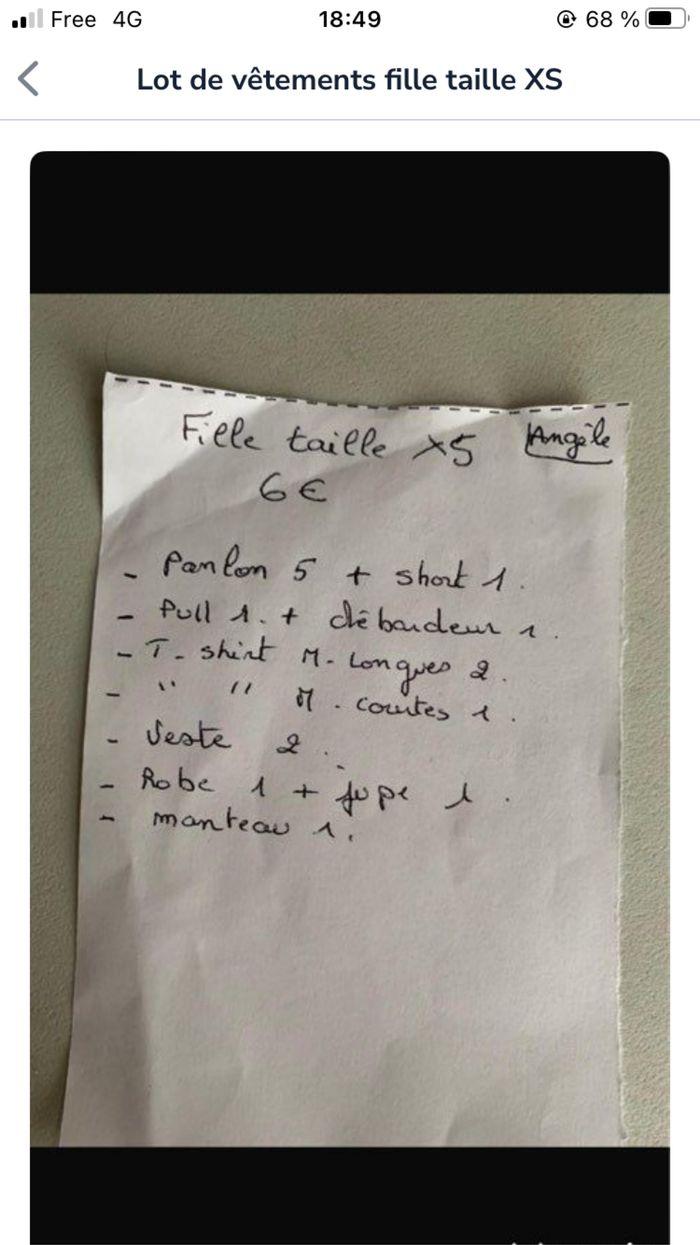 Free 4G 18:49 68 %
Lot de vêtements fille taille XS
Fille taille XS Angèle
6€
- Panlon 5 + short 1.
- Pull 1. + débardeur 1.
- T-shirt M-Longues 2.
- " " M. courtes 1.
- Veste 2.
- Robe 1 + jupe 1.
- manteau 1.